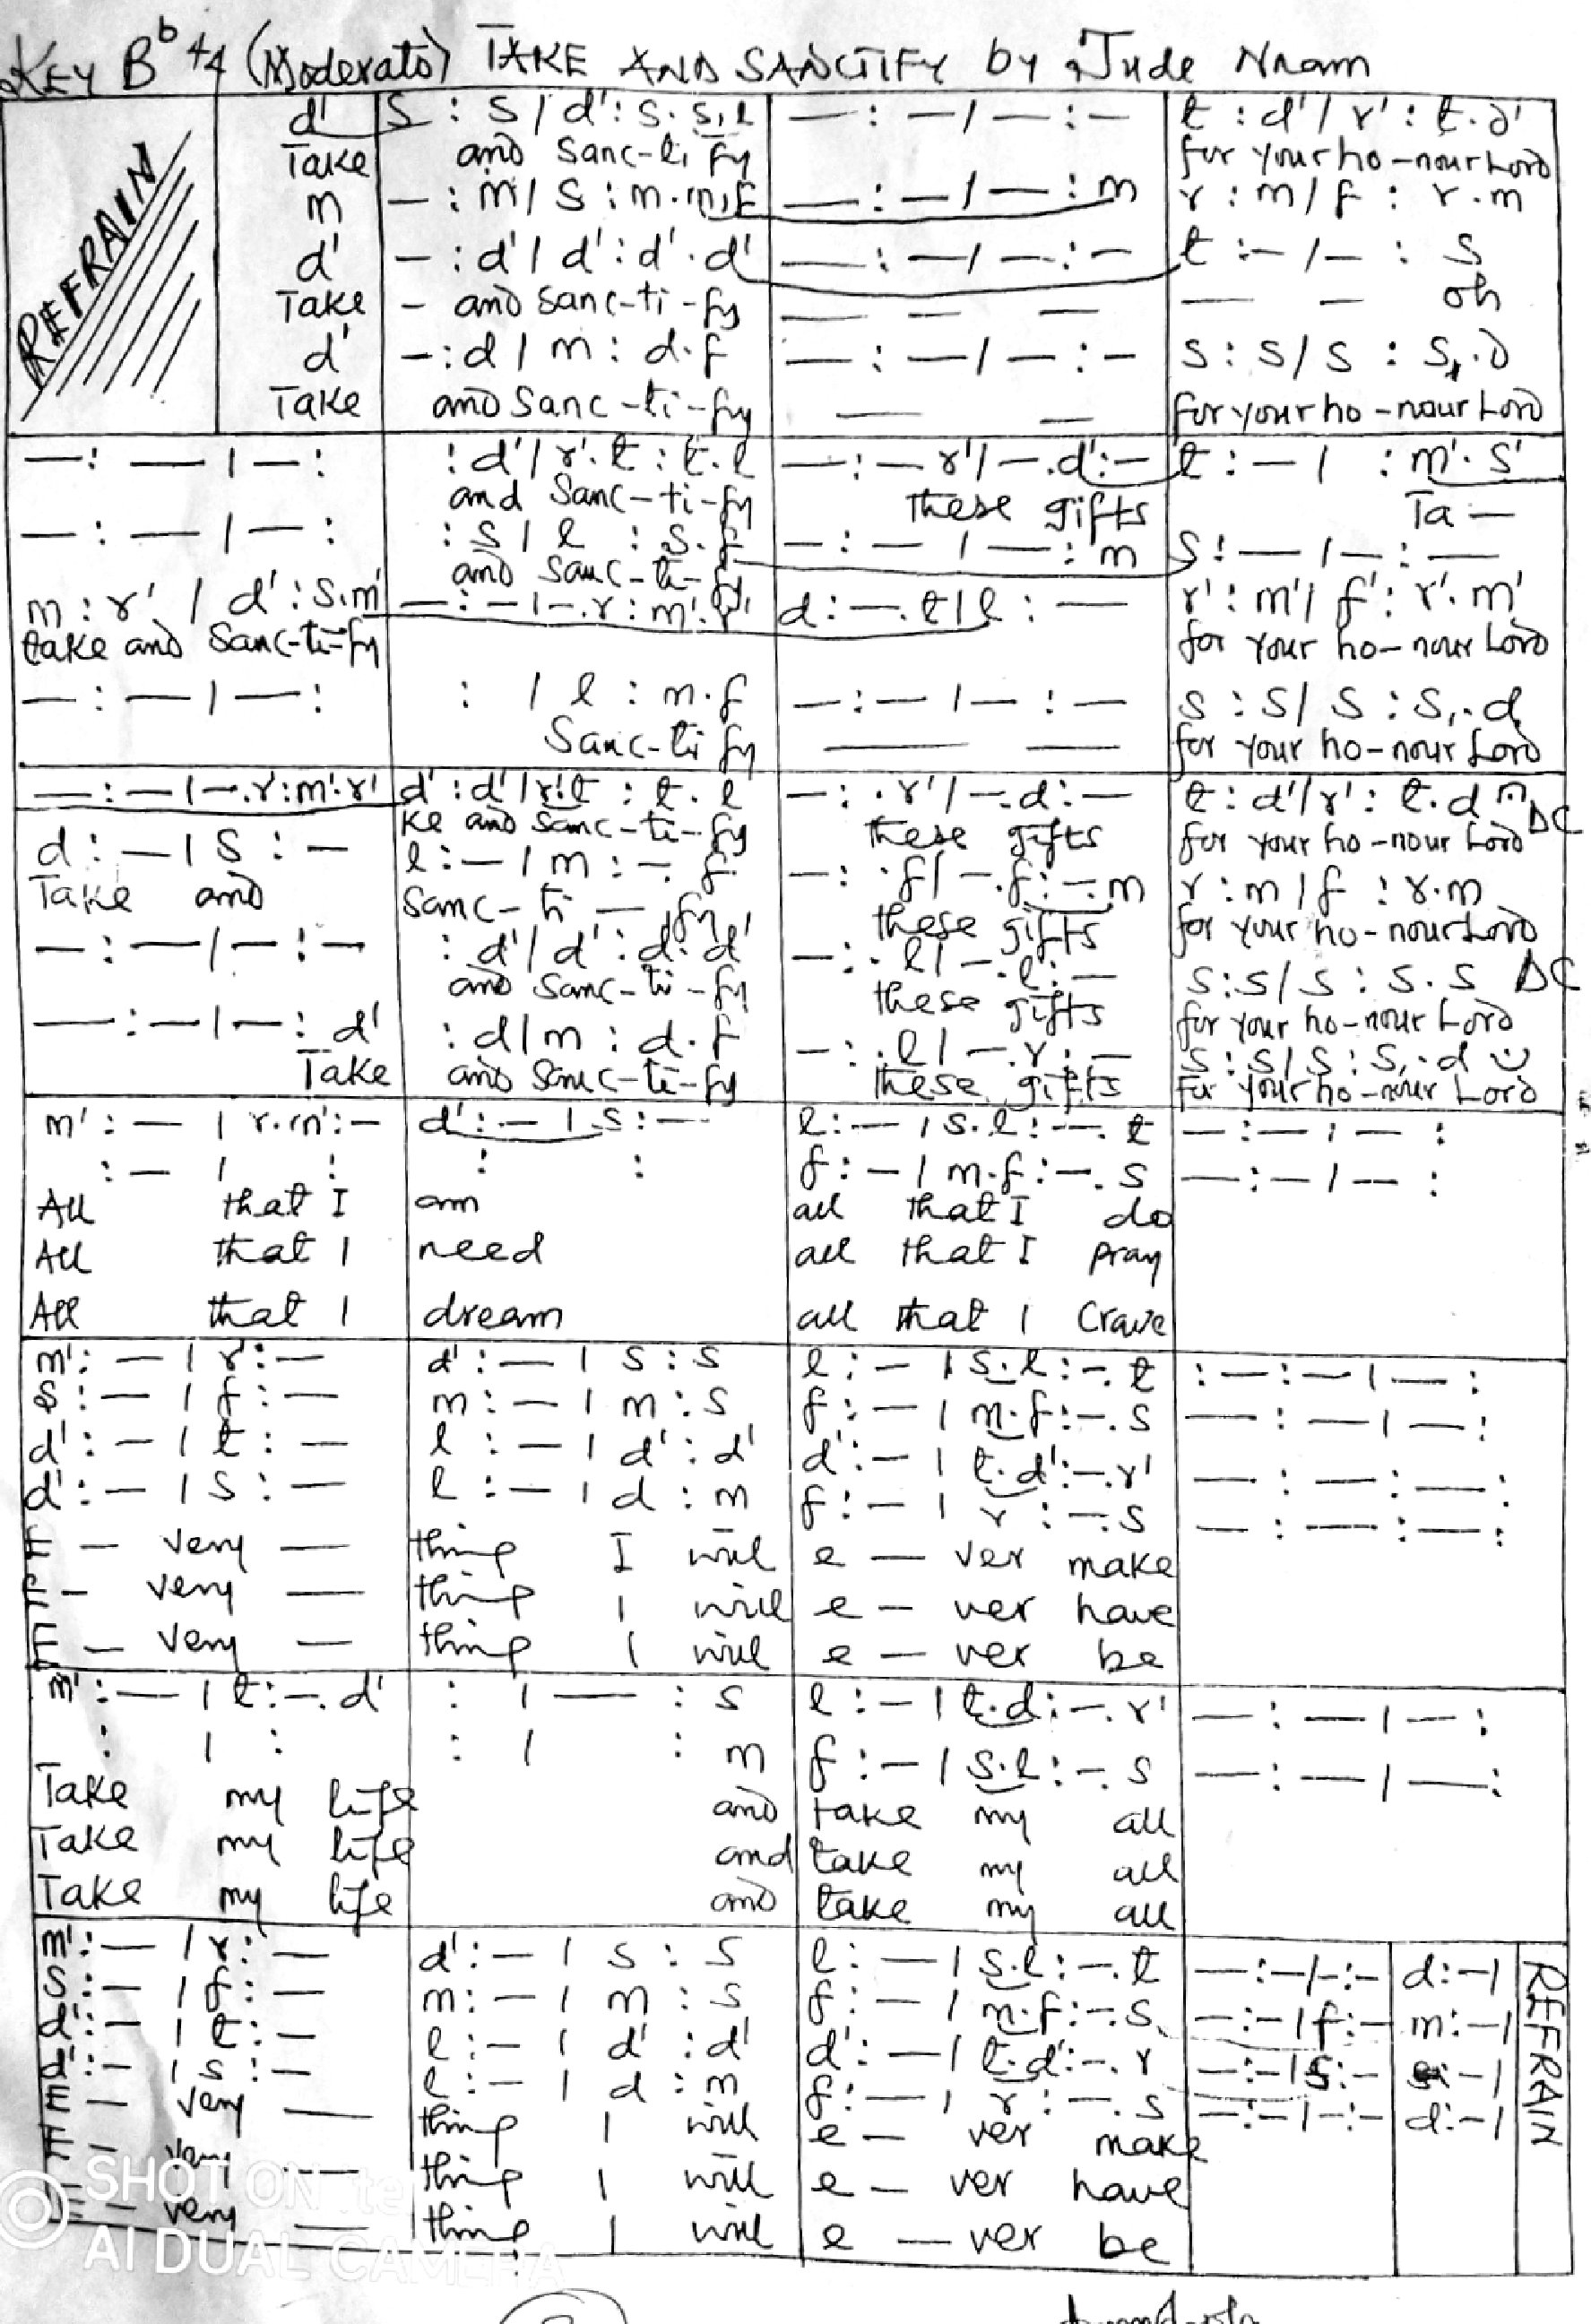 KEY Bb 4/4 (Moderato) TAKE AND SANCTIFY by Jude Nnam
REFRAIN
d' | s : s / d' : s . s , l | — : — / — : — | t : d' / r' : t . d'
Take and Sanc-ti fy for your ho-nour Lord
m | — : m / s : m . m , f | — : — / — : m | r : m / f : r . m
d' | — : d' / d' : d' . d' | — : — / — : — | t : — / — : s
Take - and Sanc-ti-fy — — — — — oh
d' | — : d / m : d . f | — : — / — : — | s : s / s : s, . d
Take and Sanc-ti-fy — — for your ho-nour Lord
— : — / — : | : d' / r' . t : t . l | — : — r' / — . d' : — | t : — / : m' . s'
and Sanc-ti-fy these gifts Ta —
— : — / — : | : s / l : s . f | — : — / — : m | s : — / — : —
and Sanc-ti-fy
m : r' / d' : s . m' | — : — / — . r : m' . r' | d : — . t / l : — | r' : m' / f' : r' . m'
take and Sanc-ti-fy for your ho-nour Lord
— : — / — : | : / l : m . f | — : — / — : — | s : s / s : s, . d
Sanc-ti fy — — for your ho-nour Lord
— : — / — . r : m' . r' | d' : d' / r' . t : t . l | — : . r' / — . d : — | t : d' / r' : t . d DC
ke and Sanc-ti-fy these gifts for your ho-nour Lord
d : — / s : — | l : — / m : — . f | — : . f / — . f : — . m | r : m / f : r . m
Take and Sanc-ti — fy these gifts for your ho-nour Lord
— : — / — : — | : d' / d' : d . d' | — : . l / — . l : — | s : s / s : s . s DC
and Sanc-ti-fy these gifts for your ho-nour Lord
— : — / — : d' | : d / m : d . f | — : . l / — . r : — | s : s / s : s, . d
Take and Sanc-ti-fy these gifts for your ho-nour Lord
m' : — / r . m' : — | d' : — / s : — | l : — / s . l : — . t | — : — / — :
: — / : | : : | f : — / m . f : — . s | — : — / — :
All that I am all that I do
All that I need all that I pray
All that I dream all that I Crave
m' : — / r' : — | d' : — / s : s | l : — / s . l : — . t | : — : — / — :
s : — / f : — | m : — / m : s | f : — / m . f : — . s | — : — / — :
d' : — / t : — | l : — / d' : d' | d' : — / t . d' : — . r' | — : — : — :
d' : — / s : — | l : — / d : m | f : — / r : — . s | — : — : — :
E — very — thing I will e — ver make
E — very — thing I will e — ver have
E — very — thing I will e — ver be
m' : — / t : — . d' | : / — : s | l : — / t . d : — . r' | — : — / — :
: / : | : / : m | f : — / s . l : — . s | — : — / — :
Take my life and take my all
Take my life and take my all
Take my life and take my all
m' : — / r : — | d' : — / s : s | l : — / s . l : — . t | — : — / — : — | d : — /
s : — / f : — | m : — / m : s | f : — / m . f : — . s | — : — / f : — | m : — /
d' : — / t : — | l : — / d' : d' | d' : — / t . d' : — . r | — : — / s : — | : — /
d' : — / s : — | l : — / d : m | f : — / r : — . s | — : — / — : — | d : — /
REFRAIN
E — very — thing I will e — ver make
E — very — thing I will e — ver have
E — very — thing I will e — ver be
SHOT ON te
AI DUAL CAMERA